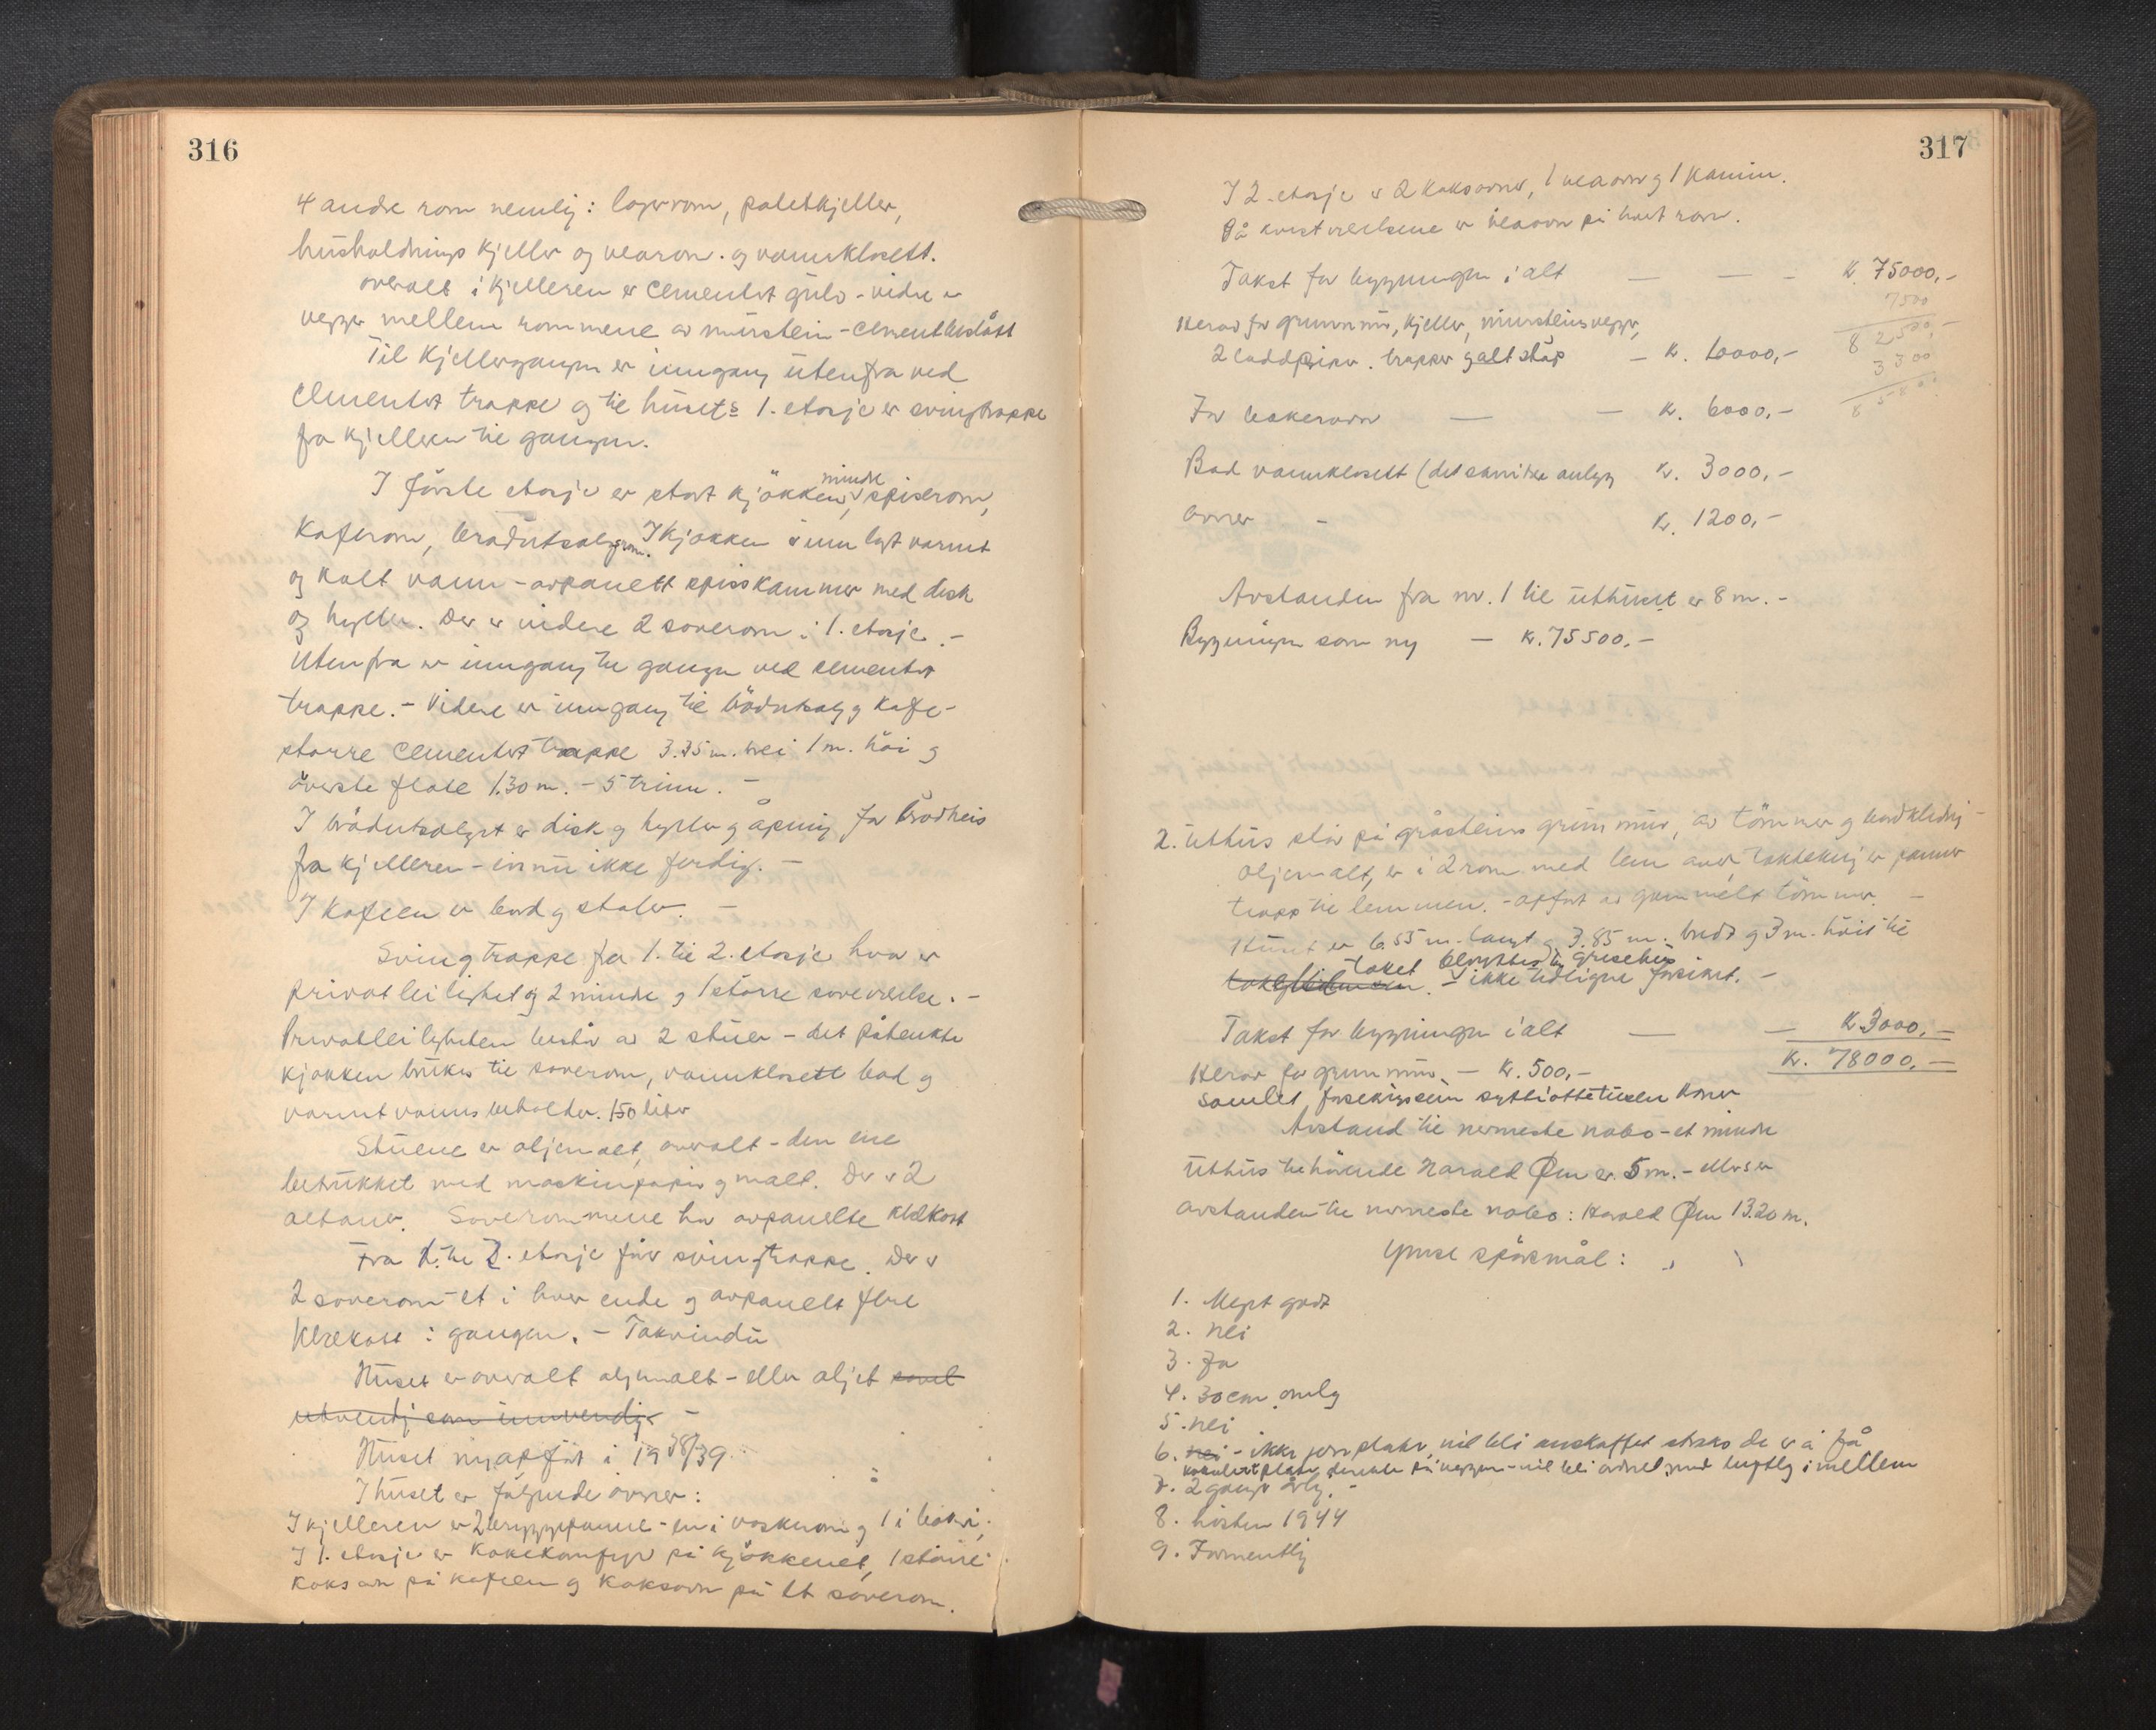 316
4 andre rom nemlig: lagerrom, potetkjeller,
husholdnings kjeller og vearom. og vannklosett.
overalt i kjelleren er cementert gulv - videre er
vegger mellem rommene av murstein - cementbeslått
Til kjellergangen er inngang utenfra ved
cementert trappe og til husets 1. etasje er svingtrappe
fra kjelleren til gangen.
I første etasje er stort kjøkken, mindre spiserom,
Kaferom, brødutsalgsrom. I kjøkken er innlagt varmt
og kalt vann - avpanelt spisskammer med disk
og hyller. Der er videre 2 soverom i 1. etasje. -
Utenfra er inngang til gangen ved cementert
trappe. - Videre er inngang til brødutsalg og kafe-
større cementert trappe 3.35 m. brei 1 m. høi og
øverste flate 1.30 m. - 5 trinn. -
I brødutsalget er disk og hyller og åpning for brødheis
fra kjelleren - ennu ikke ferdig. -
I Kafeen er bord og stoler. -
Svingtrappe fra 1. til 2. etasje hvor er
privatleilighet og 2 mindre og 1 større soveværelse. -
Privatleiligheten består av 2 stuer - det påtenkte
kjøkken brukes til soverom, vannklosett bad og
varmtvannsbeholder. 150 liter
Stuene er oljemalt, overalt - den ene
betrukket med maskinpapir og malt. Der er 2
altaner. Soverommene har avpanelte klekott
Fra 1. til 2. etasje før svingtrappe. Der er
2 soverom et i hver ende og avpanelt flere
klekott i gangen. - Takvindu
Huset er overalt oljemalt - eller oljet såvel
utvendig som innvendig. -
Huset nyopført i 1938/39.
I huset er følgende ovner:
I kjelleren er 2 bryggepanne - en i vaskerom og 1 i bakeri.
I 1. etasje er kokekomfyr på kjøkkenet, 1 større
koksovn på kafeen og koksovn på et soverom.
317
I 2. etasje er 2 koksovner, 1 veaovn og 1 kamin.
På kvistværelsene er veaovn på hvert rom.
Takst for bygningen i alt — — - kr. 75000,-
7500
82500,-
3300
85800
Herav for grunnmur, kjeller, murstensvegger,
2 laddpiper. trapper og alt støp — kr. 10000,-
For bakerovn — — kr. 6000,-
Bad vannklosett (det sanitære anlegg kr. 3000,-
ovner - kr. 1200,-
Avstanden fra nr. 1 til uthuset er 8 m. -
Bygningen som ny — kr. 75500,-
2. Uthus står på gråsteins grunnmur, av tømmer og bordkledning -
oljemalt, er i 2 rom med lem over, taktekning er panner
trapp til lemmen. - opført av gammelt tømmer. -
Huset er 6.55 m. langt og 3.85 m. bredt og 3 m. høit til
taket benyttes til grisehus - ikke tidligere forsikret. -
Takst for bygningen i alt — — kr. 3000,-
kr. 78000,-
Herav for grunnmur - kr. 500,-
Samlet forsikringssum syttiåttetusen kroner
Avstand til nermeste nabo - et mindre
Uthus tilhørende Harald Øen er 5 m. - ellers er
avstanden til nermeste nabo: Harald Øen 13.20 m.
Ymse spørsmål:
1. Meget godt
2. nei
3. Ja
4. 30 cm. omlag
5. nei
6. nei - ikke jernplater, vil bli anskaffet straks de er å få
7. 2 ganger årlig. -
8. høsten 1944
9. Forventlig